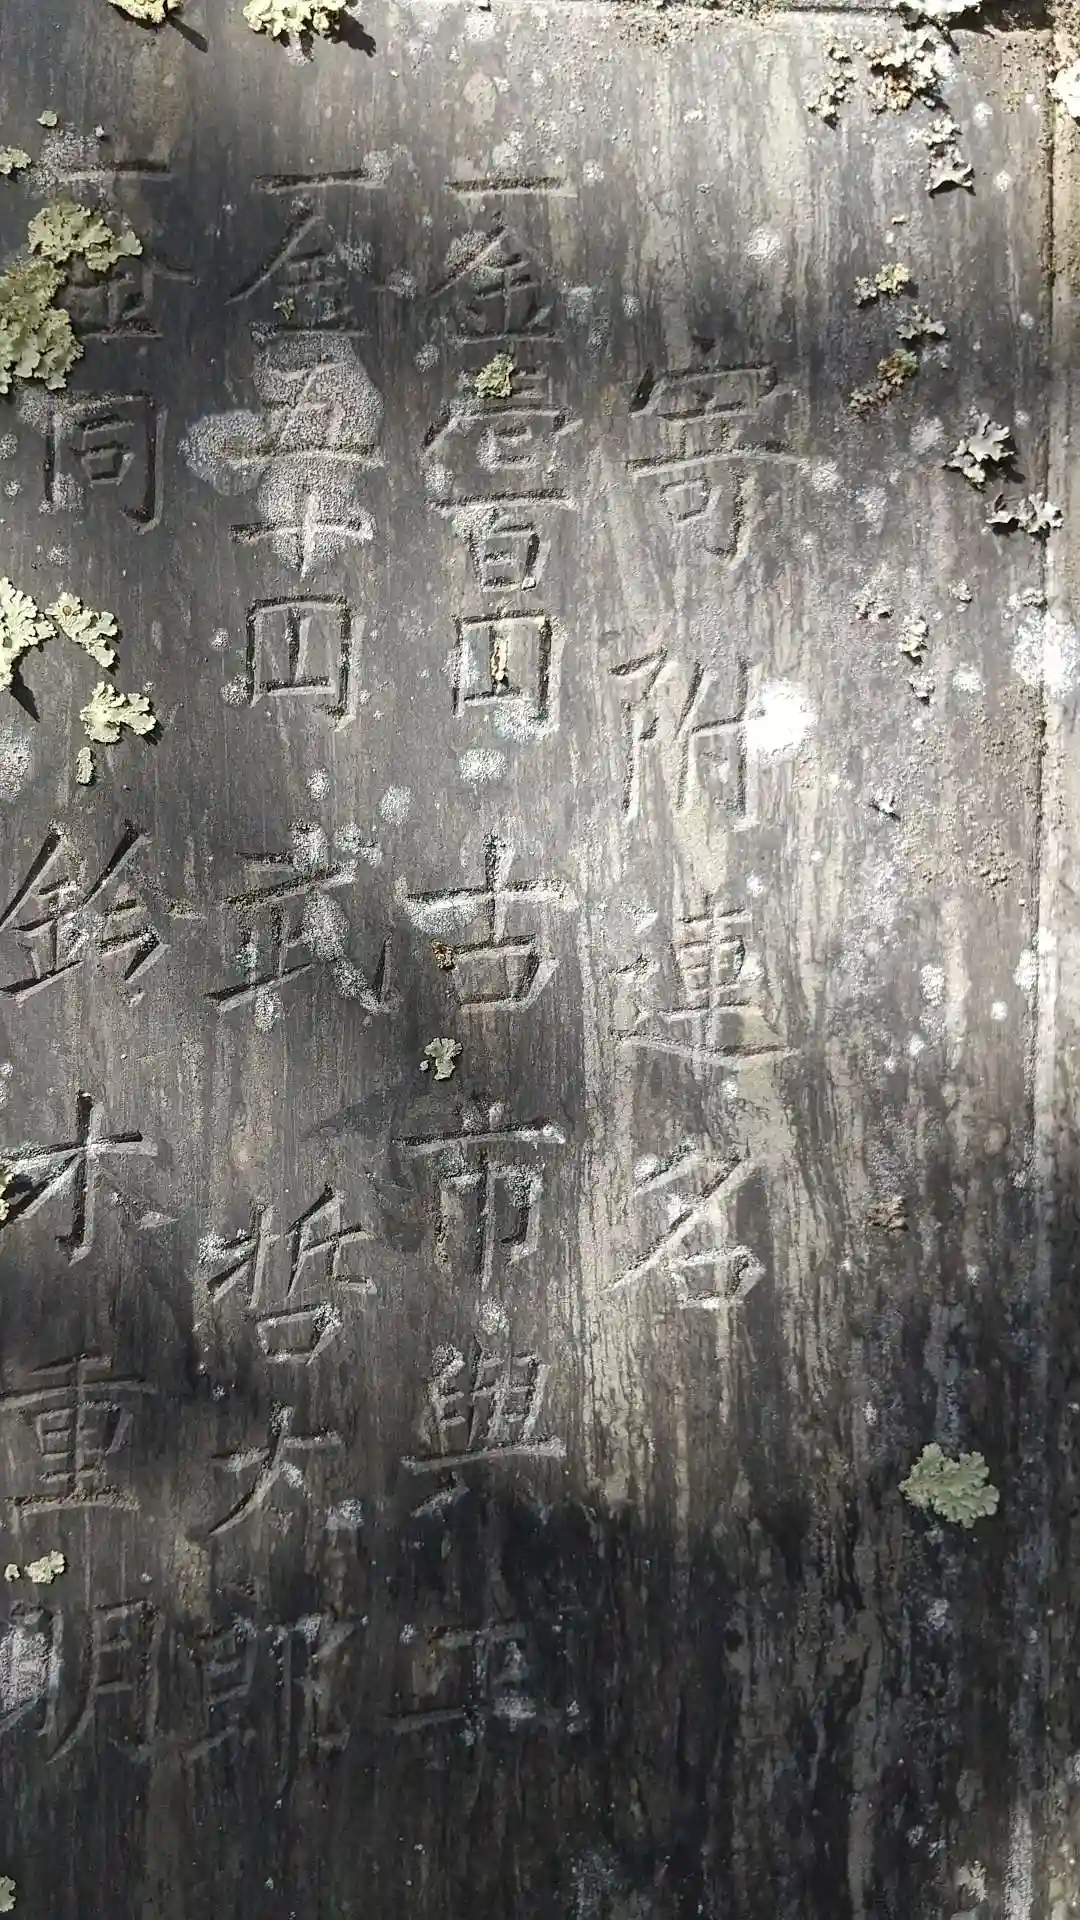 寄附連名
一金壹百円 古市與正
一金五十円 武哲太郎
一金同 鈴木重明